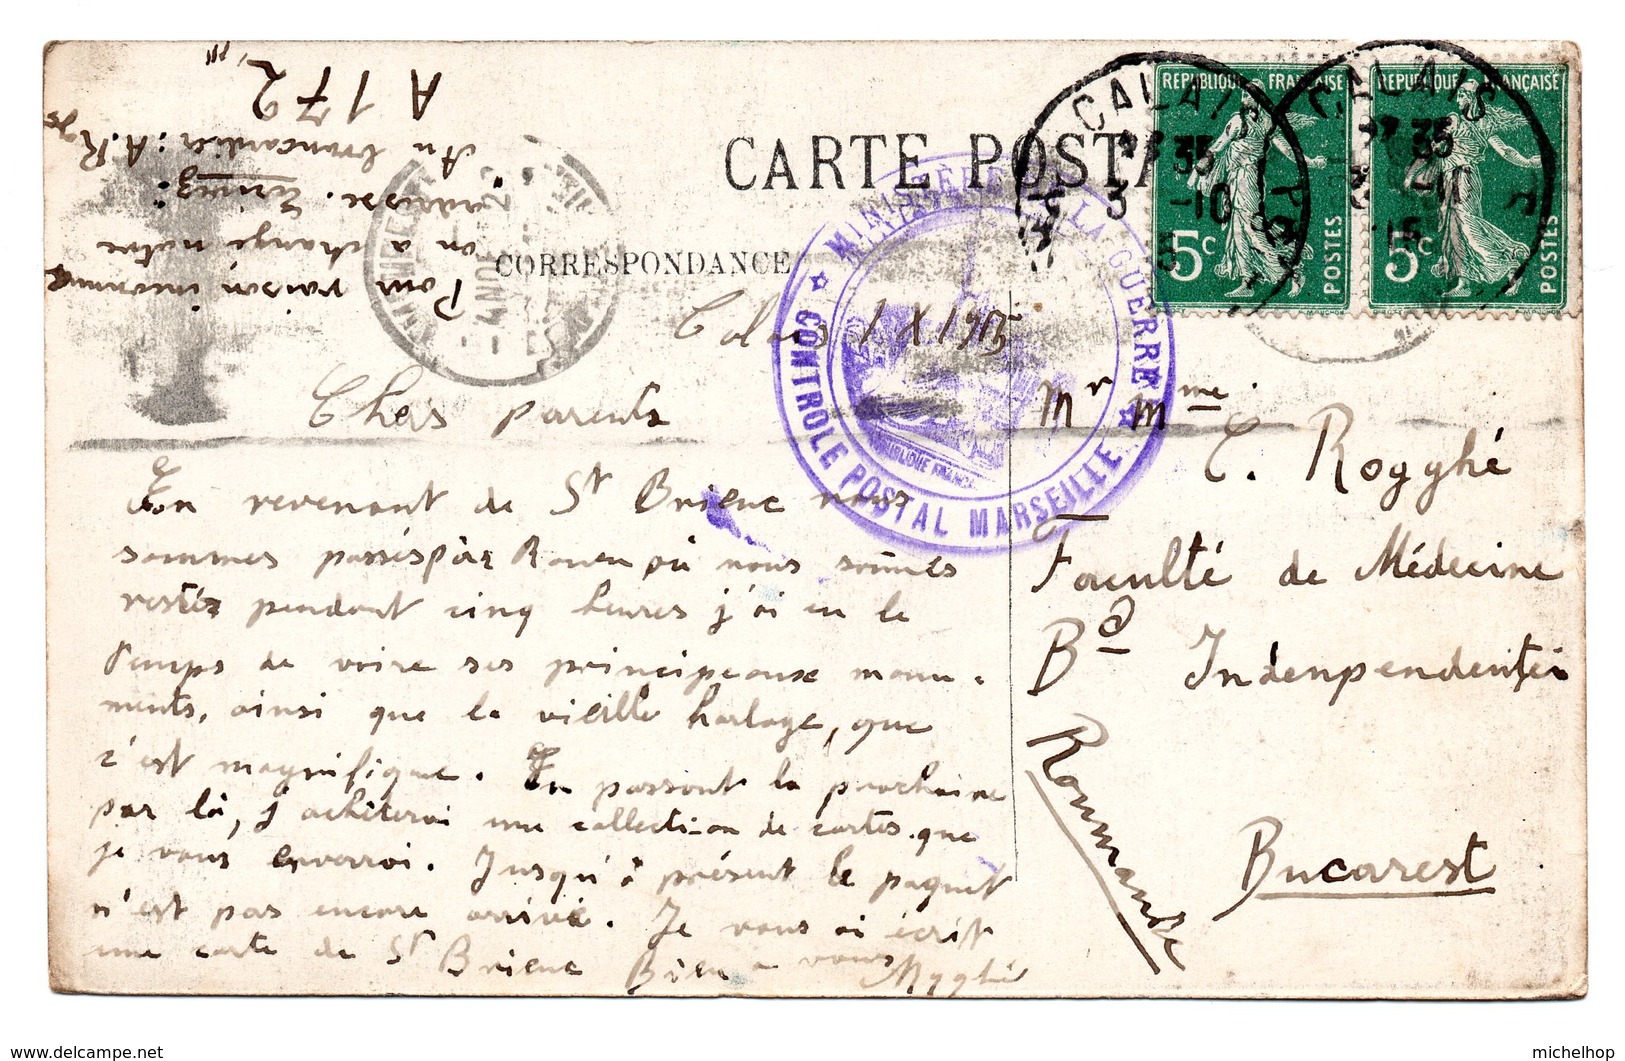 CARTE POSTA
CORRESPONDANCE
REPUBLIQUE FRANÇAISE
5c
POSTES
REPUBLIQUE FRANÇAISE
5c
POSTES
CALAIS
35
3 -10
CALAIS
35
-10
15
MINISTÈRE DE LA GUERRE
CONTROLE POSTAL MARSEILLE
Pour raison inconnue
on a changé notre
adresse. Ecrivez:
Au brancardier: A.R
A 172
Calais 1 X 1915
Chers parents
En revenant de St Brieuc nous
sommes passés par Rouen où nous sommes
restés pendant cinq heures j'ai eu le
temps de voire ses principeaux monu-
ments, ainsi que la vieille horloge, que
c'est magnifique. En passant la prochaine
par là, j'achèterai une collection de cartes que
je vous enverrai. Jusqu'à présent le paquet
n'est pas encore arrivé. Je vous ai écrit
une carte de St Brieuc Bien a vous
Mr Mme
C. Rogghé
Faculté de Médecine
Bd Indenpendentei
Bucarest
Roumanie
www.delcampe.net
michelhop